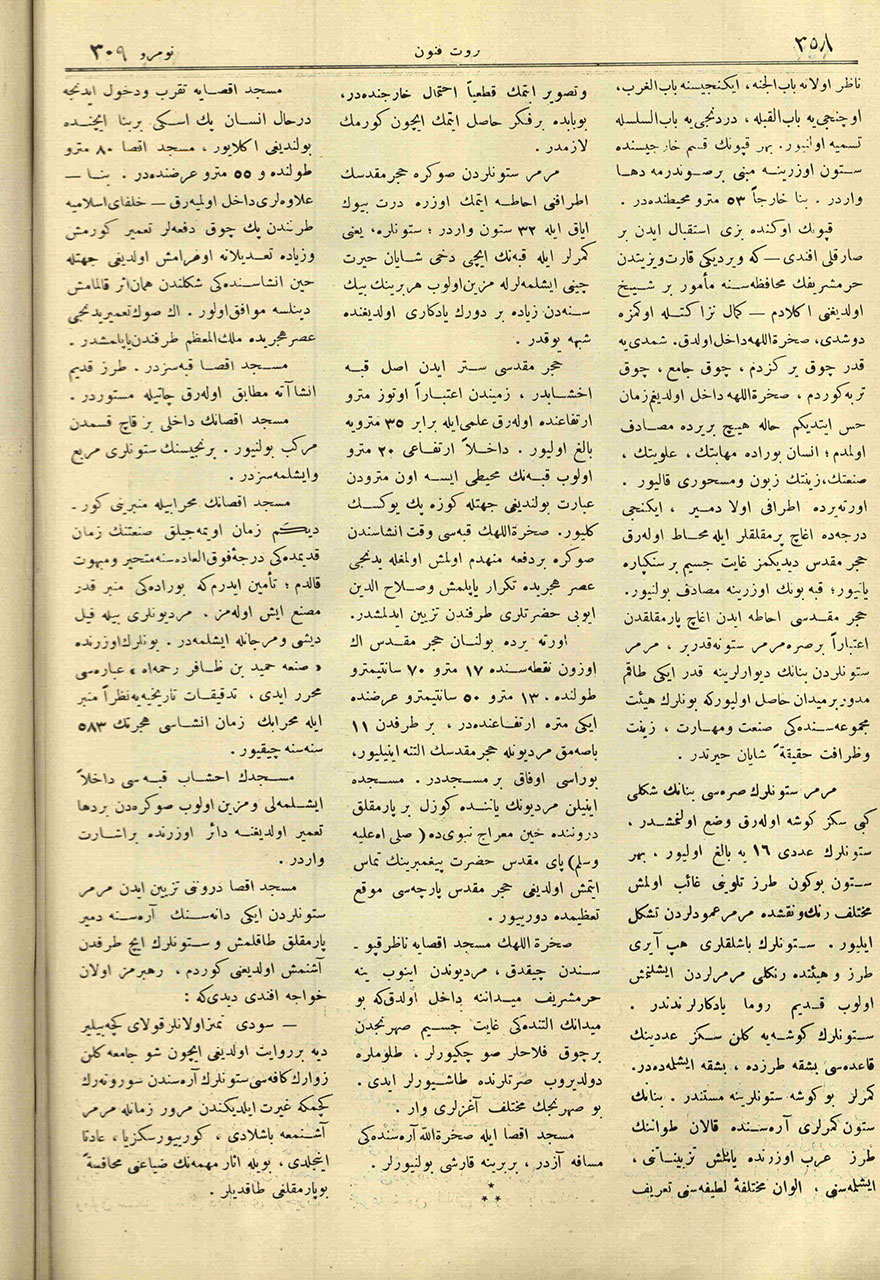 ٣٥٨
ثروت فنون
نومرو ٣٠٩
ناظر اولانه باب الجنه ، ايكنجيسنه باب الغرب،
اوچنجى يه باب القبله ، دردنجى يه باب السلسله
تسميه اولنيور. بهر قپونك قسم خارجيسنده
ستون اوزرينه مبنى برصوندرمه دها
واردر . بنا خارجاً ٥٣ مترو محيطنده در .
قپونك اوكنده بزى استقبال ايدن بر
صارقلى افندى — كه ويرديكى قارت ويزيتدن
حرمشريفك محافظه سنه مأمور بر شيخ
اولديغنى اكلادم — كمال نزاكتله اوكمزه
دوشدى، صخرة اللهه داخل اولدق. شمدى يه
قدر چوق ير كزدم ، چوق جامع ، چوق
تربه كوردم ، صخرة اللهه داخل اولديغم زمان
حس ايتديكم حاله هيچ بريرده مصادف
اولمدم ؛ انسان بوراده مهابتك ، علويتك ،
صنعتك، زينتك زبون ومسحورى قاليور .
اورته يرده اطرافى اولا دمير ، ايكنجى
درجه ده اغاچ پرمقلقلر ايله محاط اوله رق
حجر مقدس ديديكمز غايت جسيم بر سنكپاره
ياتيور؛ قبه بونك اوزرينه مصادف بولنيور.
حجر مقدسى احاطه ايدن اغاچ پارمقلقدن
اعتباراً برصره مرمر ستونه قدر بر ، مرمر
ستونلردن بنانك ديوارلرينه قدر ايكى طاقم
مدور برميدان حاصل اوليور كه بونلرك هيئت
مجموعه سنده كى صنعت ومهارت ، زينت
وظرافت حقيقةً شايان حيرتدر .
مرمر ستونلرك صره سى بنانك شكلى
كبى سكز كوشه اوله رق وضع اولنمشدر .
ستونلرك عددى ١٦ يه بالغ اوليور ، بهر
ستون بوكون طرز تلوينى غائب اولمش
مختلف رنك ونقشده مرمر عمودلردن تشكل
ايليور . ستونلرك باشلقلرى هپ آيرى
طرز و هيئتده رنكلى مرمرلردن ايشلنمش
اولوب قديم روما يادكارلرندندر .
ستونلرك كوشه يه كلن سكز عددينك
قاعده سى بشقه طرزده ، بشقه ايشلمه ده در.
كمرلر بو كوشه ستونلرينه مستندر . بنانك
ستون كمرلرى آره سنده قالان طواننك
طرز عرب اوزرنده يابلمش تزييناتى ،
ايشلمه سنى ، الوان مختلفۀ لطيفه سنى تعريف
وتصوير اتمك قطعياً احتمال خارجنده در،
بوبابده برفكر حاصل ايتمك ايچون كورمك
لازمدر .
مرمر ستونلردن صوكره حجر مقدسك
اطرافنى احاطه ايتمك اوزره درت بيوك
اياق ايله ٣٢ ستون واردر ؛ ستونلره، يعنى
كمرلر ايله قبه نك ايچى دخى شايان حيرت
چينى ايشلمه لرله مزين اولوب هر برينك بيك
سنه دن زياده بر دورك يادكارى اولديغنده
شبهه يوقدر .
حجر مقدسى ستر ايدن اصل قبه
اخشابدر ، زميندن اعتباراً اوتوز مترو
ارتفاعنده اوله رق علمى ايله برابر ٣٥ مترويه
بالغ اوليور . داخلاً ارتفاعى ٢٠ مترو
اولوب قبه نك محيطى ايسه اون مترودن
عبارت بولنديغى جهتله كوزه پك يوكسك
كليور. صخرة اللهك قبه سى وقت انشاسندن
صوكره بردفعه منهدم اولمش اولمغله يدنجى
عصر هجريده تكرار ياپلمش وصلاح الدين
ايوبى حضرتلرى طرفندن تزيين ايدلمشدر.
اورته يرده بولنان حجر مقدس اك
اوزون نقطه سنده ١٧ مترو ٧٠ سانتيمترو
طولنده ، ١٣ مترو ٥٠ سانتيمترو عرضنده
ايكى متره ارتفاعنده در ، بر طرفدن ١١
باصه مق مرديونله حجر مقدسك التنه اينيليور،
بوراسى اوفاق بر مسجددر . مسجده
اينيلن مرديونك ياننده كوزل بر پارمقلق
دروننده حين معراج نبويده ( صلى اه عليه
وسلم) پاى مقدس حضرت پيغمبرينك تماس
ايتمش اولديغى حجر مقدس پارچه سى موقع
تعظيمده دورييور .
صخرة اللهك مسجد اقصايه ناظر قپو ـ
سندن چيقدق ، مرديوندن اينوب ينه
حرمشريف ميداننه داخل اولدق كه بو
ميدانك التنده كى غايت جسيم صهرنجدن
برچوق فلاحلر صو چكيورلر ، طلوملره
دولديروب صرتلرنده طاشيورلر ايدى .
بو صهرنجك مختلف آغزلرى وار .
مسجد اقصا ايله صخرة اللّٰه آره سنده كى
مسافه آزدر ، بربرينه قارشى بولنيورلر .
٭ ٭ ٭
مسجد اقصايه تقرب ودخول ايدنجه
درحال انسان پك اسكى بربنا ايچنده
بولنديغى اكلايور ، مسجد اقصا ٨٠ مترو
طولنده و ٥٥ مترو عرضنده در . بنا —
علاوه لرى داخل اولميه رق — خلفاى اسلاميه
طرفندن پك چوق دفعه لر تعمير كورمش
وزياده تعديلاته اوغرامش اولديغى جهتله
حين انشاسنده كى شكلندن همان اثر قالمامش
دينلسه موافق اولور . اك صوك تعمير يدنجى
عصر هجريده ملك المعظم طرفندن ياپلمشدر .
مسجد اقصا قبه سزدر . طرز قديم
انشاآته مطابق اوله رق چاتيله مستوردر .
مسجد اقصانك داخلى بر قاچ قسمدن
مركب بولنيور . برنجيسنك ستونلرى مربع
وايشلمه سزدر .
مسجد اقصانك محرابيله منبرينى كور ـ
ديكم زمان اويمه جيلق صنعتنك زمان
قديمده كى درجۀ فوق العاده سنه متحير ومبهوت
قالدم ؛ تأمين ايدرم كه بوراده كى منبر قدر
مصنع ايش اوله مز . مرديونلرى بيله فيل
ديشى ومرجانله ايشلمه در . بونلرك اوزرنده
« صنعه حميد بن ظافر رحمه اه » عباره سى
محرر ايدى ، تدقيقات تاريخيه يه نظراً منبر
ايله محرابك زمان انشاسى هجرتك ٥٨٣
سنه سنه چيقيور .
مسجدك اخشاب قبه سى داخلاً
ايشلمه لى ومزين اولوب صوكره دن بردها
تعمير اولديغنه دائر اوزرنده براشارت
واردر .
مسجد اقصا دروننى تزيين ايدن مرمر
ستونلردن ايكى دانه سنك آره سنه دمير
پارمقلق طاقلمش و ستونلرك ايچ طرفدن
آشنمش اولديغنى كوردم ، رهبرمز اولان
خواجه افندى ديدى كه :
— سودى تميز اولانلر قولاى كچه بيلير
ديه بر روايت اولديغى ايچون شو جامعه كلن
زوارك كافه سى ستونلرك آره سندن سورونه رك
كچمكه غيرت ايلديكندن مرور زمانله مرمر
آشنمغه باشلادى ، كورييورسكز يا ، عادتا
اينجلدى ، بويله اثار مهمه نك ضياعنى محافظةً
بوپارمقلغى طاقديلر .